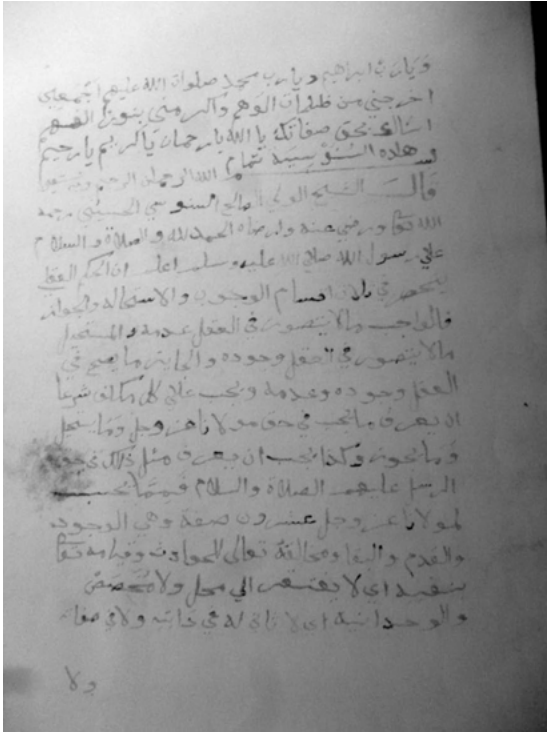 ويارب ابراهيم ويارب محمد صلوات الله عليهم اجمعين
اخرجني من ظلمات الوهم واكرمني بنور الفهم
اسالك بحق صفاتك يا الله يا رحمان يا كريم يا رحيم
وهاذه السنوسية تمام بسم الله الرحمان الرحيم
قال الشيخ الولي الصالح السنوسي الحسيني رحمه
الله تعا ورضي عنه وارضاه الحمد لله والصلاة والسلام
علي رسول الله صلي الله عليه وسلم اعلم ان الحكم العقلي
ينحصر في ثلاث اقسام الوجوب والاستحالة والجواز
فالواجب مالا يتصور في العقل عدمه والمستحيل
مالا يتصور في العقل وجوده والجايز ما يصح في
العقل وجوده وعدمه ويجب علي كل مكلف شرعا
ان يعرف ما يجب في حق مولانا عز وجل وما يستحيل
وما يجوز وكذا يجب ان يعرف مثل ذالك في حق
الرسل عليهم الصلاة والسلام فمما يجب
لمولانا عز وجل عشرون صفة وهي الوجود
والقدم والبقاء ومخالفته تعالى للحوادث وقيامه تعا
بنفسه اي لا يفتقر الي محل ولا مخصص
والوحدانية اي لا ثاني له في ذاته ولا في صفاته
ولا